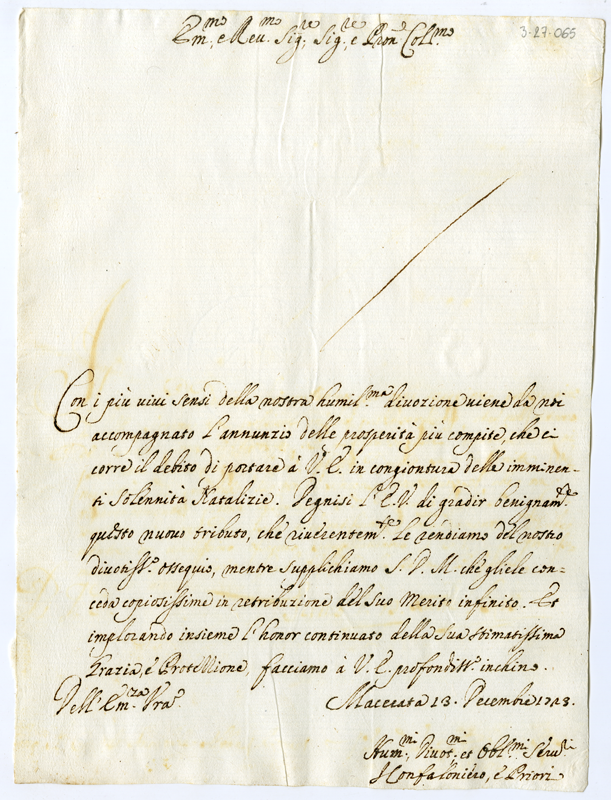 3-27-065
Em.mo, e Reu.mo Sig.re, Sig.re, e Pron.e Col.mo
Con i più vivi sensi della nostra humil.ma divozione viene da noi
accompagnato l'annunzio delle prosperità più compite, che ci
corre il debito di portare à V. E. in congiontura della imminen-
ti Solennità Natalizie. Degnisi l'E.V. di gradir benignam.te
questo nuovo tributo, che riverentem.te Le rendiamo del nostro
divotiss.o ossequio, mentre supplichiamo S. D. M. che gliele con=
ceda copiosissime in retribuzione del suo Merito infinito. Et
implorando insieme l'honor continuato della sua stimatissima
Grazia, e Protettione, facciamo à V. E. profondiss.o inchino.
Dell'Em.za Vra
Macerata 13. Decembre 1723.
Hum.mi, Divot.mi et Obl.mi Serv.ri
Il Confaloniero, e Priori